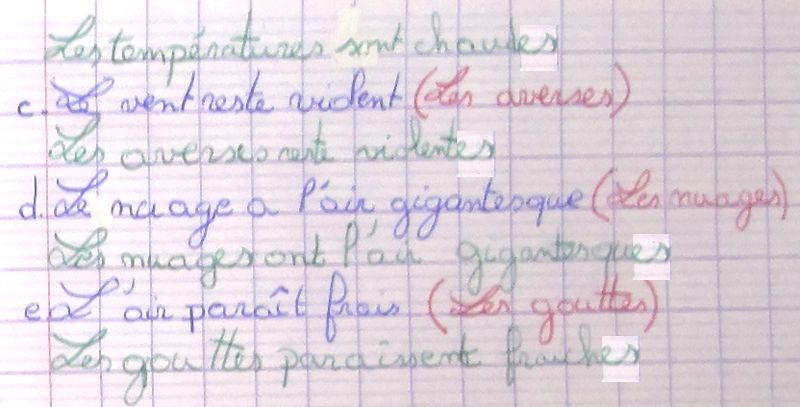 Les températures sont chaudes
c. Le vent reste violent (Les averses)
Les averses reste violentes
d. Le nuage a l'air gigantesque (Les nuages)
Les nuages ont l'air gigantesques
e. L'air paraît frais (Les gouttes)
Les gouttes paraissent fraiches